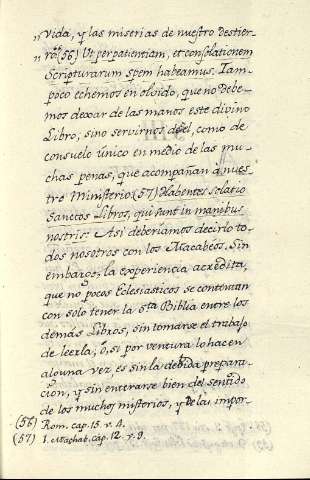 „ vida, y las miserias de nuestro destier-
„ ro." (56) Ut per patientiam, et consolationem
Scripturarum spem habeamus. Tam-
poco echemos en olvido, que no debe-
mos dexar de las manos este divino
Libro; sino servirnos de él, como de
consuelo único en medio de las mu-
chas penas, que acompañan á nues-
tro Ministerio. (57) Habentes solatio
Sanctos Libros, qui sunt in manibus
nostris. Asi deberíamos decirlo to-
dos nosotros con los Macabeos. Sin
embargo, la experiencia acredita,
que no pocos Eclesiasticos se contentan
con solo tener la Sta Biblia entre los
demás Libros, sin tomarse el trabajo
de leerla; ó, si por ventura lo hacen
alguna vez es sin la debida prepara-
cion, y sin enterarse bien del sentido
de los muchos misterios, y de las impor-
(56) Rom. cap. 15. v. 4.
(57) 1. Machab. cap. 12. v. 9.